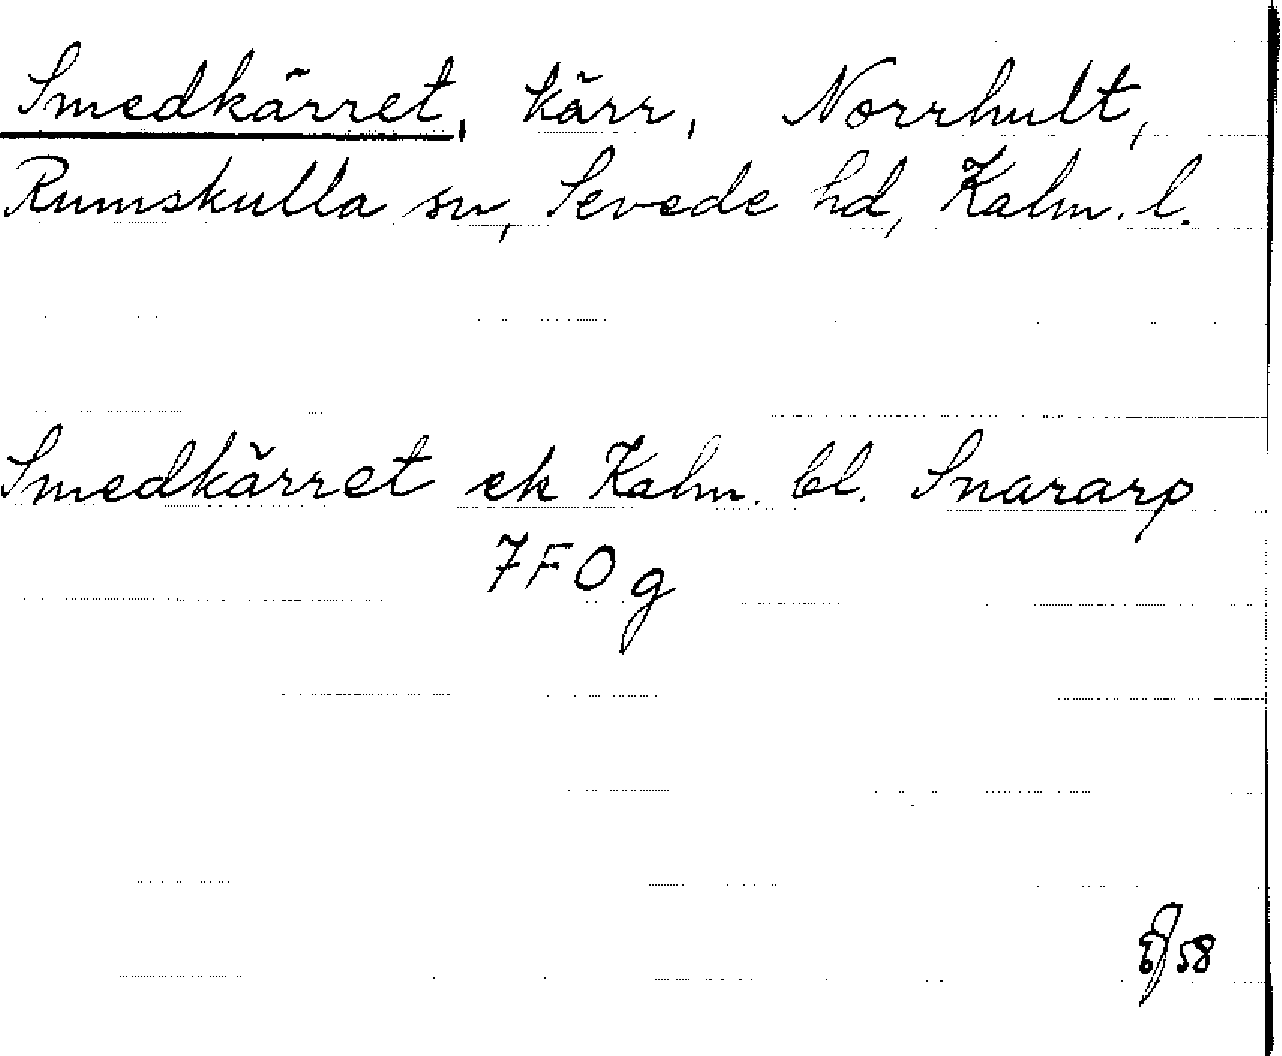 Smedkärret, kärr, Norrhult,
Rumskulla sn, Sevede hd, Kalm. l.
Smedkärret ek Kalm. bl. Snararp
7F0g
58